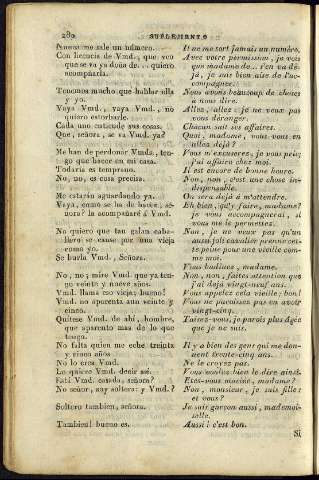 280 SUPLEMENTO
Nunca me sale un número.
Con licencia de Vmd., que veo
que se va ya doña de... quiero
acompañarla.
Tenemos mucho que hablar ella
y yo.
Vaya Vmd., vaya Vmd., no
quiero estorbarle.
Cada uno entiende sus cosas.
Que, señora, se va Vmd. ya?
Me han de perdonar Vmds., ten-
go que hacer en mi casa.
Todavia es temprano.
No, no, es cosa precisa.
Me estarán aguardando ya.
Vaya, como se ha de hacer, se-
ñora? la acompañaré á Vmd.
No quiero que tan galan caba-
llero se canse por una vieja
como yo.
Se burla Vmd., Señora.
No, no; mire Vmd. que ya ten-
go veinte y nueve años.
Vmd. llama eso vieja; bueno!
Vmd. no aparenta aun veinte y
cinco.
Quitese Vmd. de ahí, hombre,
que aparento mas de lo que
tengo.
No falta quien me eche treinta
y cinco años.
No lo creo Vmd.
Lo quiere Vmd. decir así.
Está Vmd. casada, señora?
No señor, soy soltera: y Vmd.?
Soltero tambien, señora.
Tambien! bueno es.
Il ne me sort jamais un numéro.
Avec votre permission, je vois
que madame de... s'en va dé-
jà, je suis bien aise de l'ac-
compagner.
Nous avons beaucoup de choses
à nous dire.
Allez, allez: je ne veux pas
vous déranger.
Chacun sait ses affaires.
Quoi, madame, vous vous en
allez déjà?
Vous m'excuserez, je vous prie;
j'ai affaire chez moi.
Il est encore de bonne heure.
Non, non, c'est une chose in-
dispensable.
On sera déjà à m'attendre.
Eh bien, qu'y faire, madame?
je vous accompagnerai, si
vous me le permettez.
Non, je ne veux pas qu'un
aussi joli cavalier prenne cet-
te peine pour une vieille com-
me moi.
Vous badinez, madame.
Non, non, faites attention que
j'ai déjà vingt-neuf ans.
Vous appelez cela vieille; bon!
Vous ne paroissez pas en avoir
vingt-cinq.
Taisez-vous, je parois plus âgée
que je ne suis.
Il y a bien des gens qui me don-
nent trente-cinq ans.
Ne le croyez pas.
Vous voulez bien le dire ainsi.
Etes-vous mariée, madame?
Non, monsieur, je suis fille:
et vous?
Je suis garçon aussi, mademoi-
selle.
Aussi! c'est bon.
Si